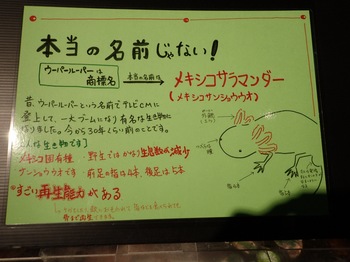 本当の名前じゃない!
ウーパールーパーは
商標名
本当の名前は
メキシコサラマンダー
(メキシコサンショウウオ)
昔、ウーパールーパーという名前でTVCMに
登上して、一大ブームになり有名な生き物に
なりました。今から30年くらい前のことです。
こんな生き物です
メキシコ固有種 野生ではかなり生息数が減少
サンショウウオです 前足の指は4本、後足は5本
すごい再生能力がある
外鰓
指4本
指5本